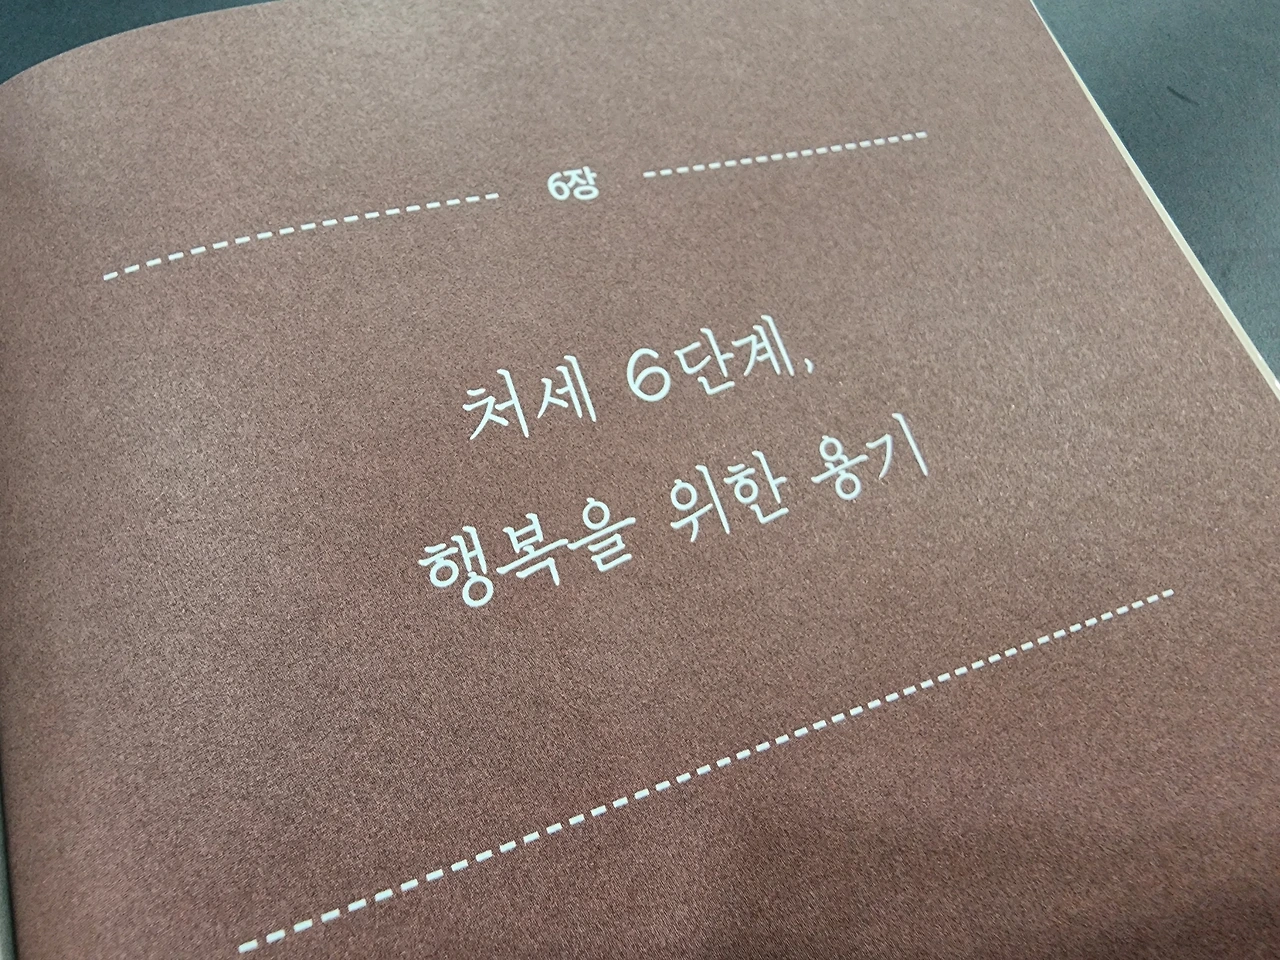 6장
처세 6단계,
행복을 위한 용기